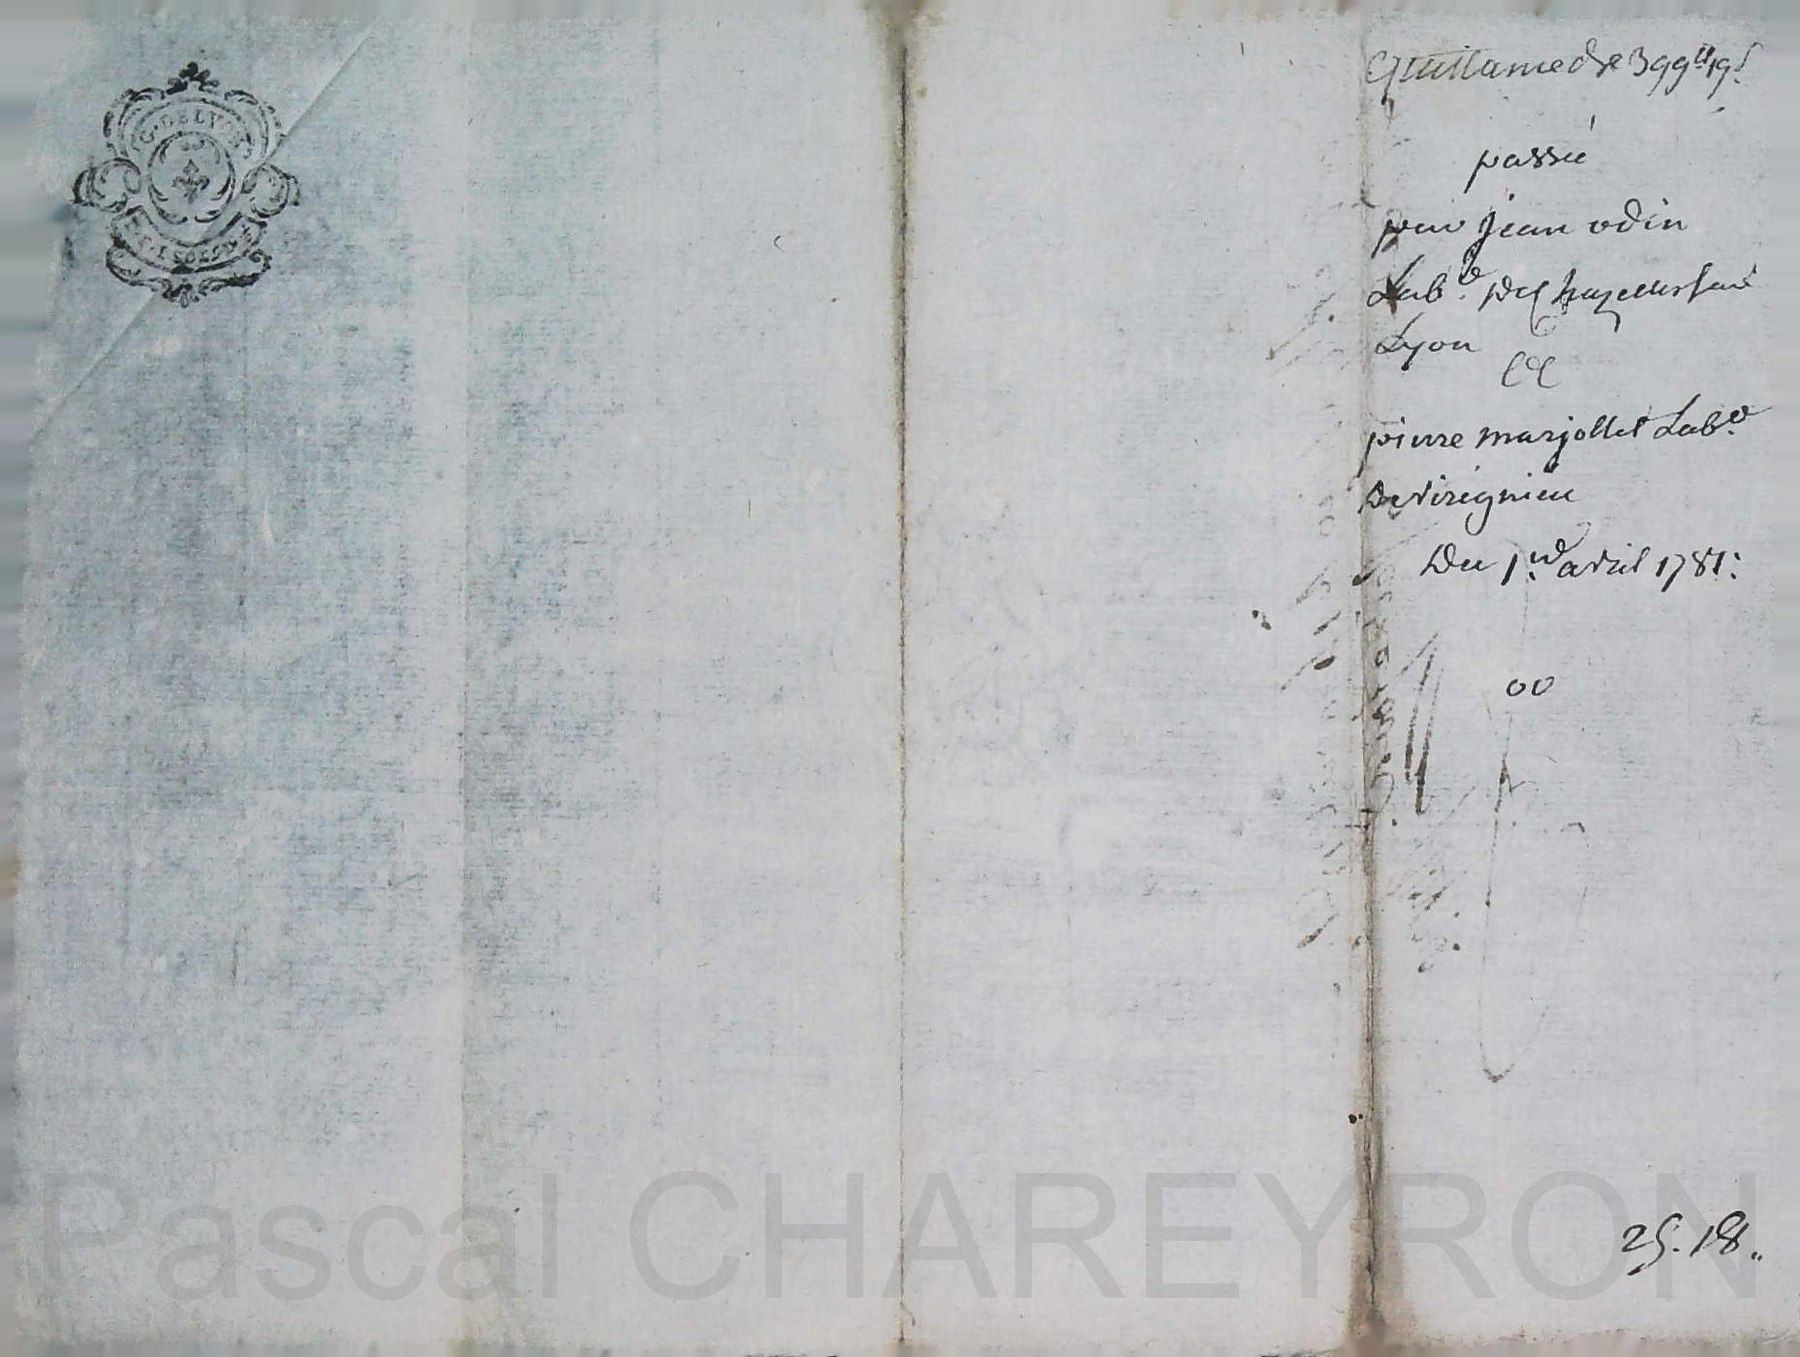 G. DE LYON
Quittance de 399# 19s
passée
par Jean odin
Labr. de Chazelles sur
Lyon
et
pierre marjollet Labr.
de virignieu
Du 1er. avril 1781:
00
25. 18..
Pascal CHAREYRON